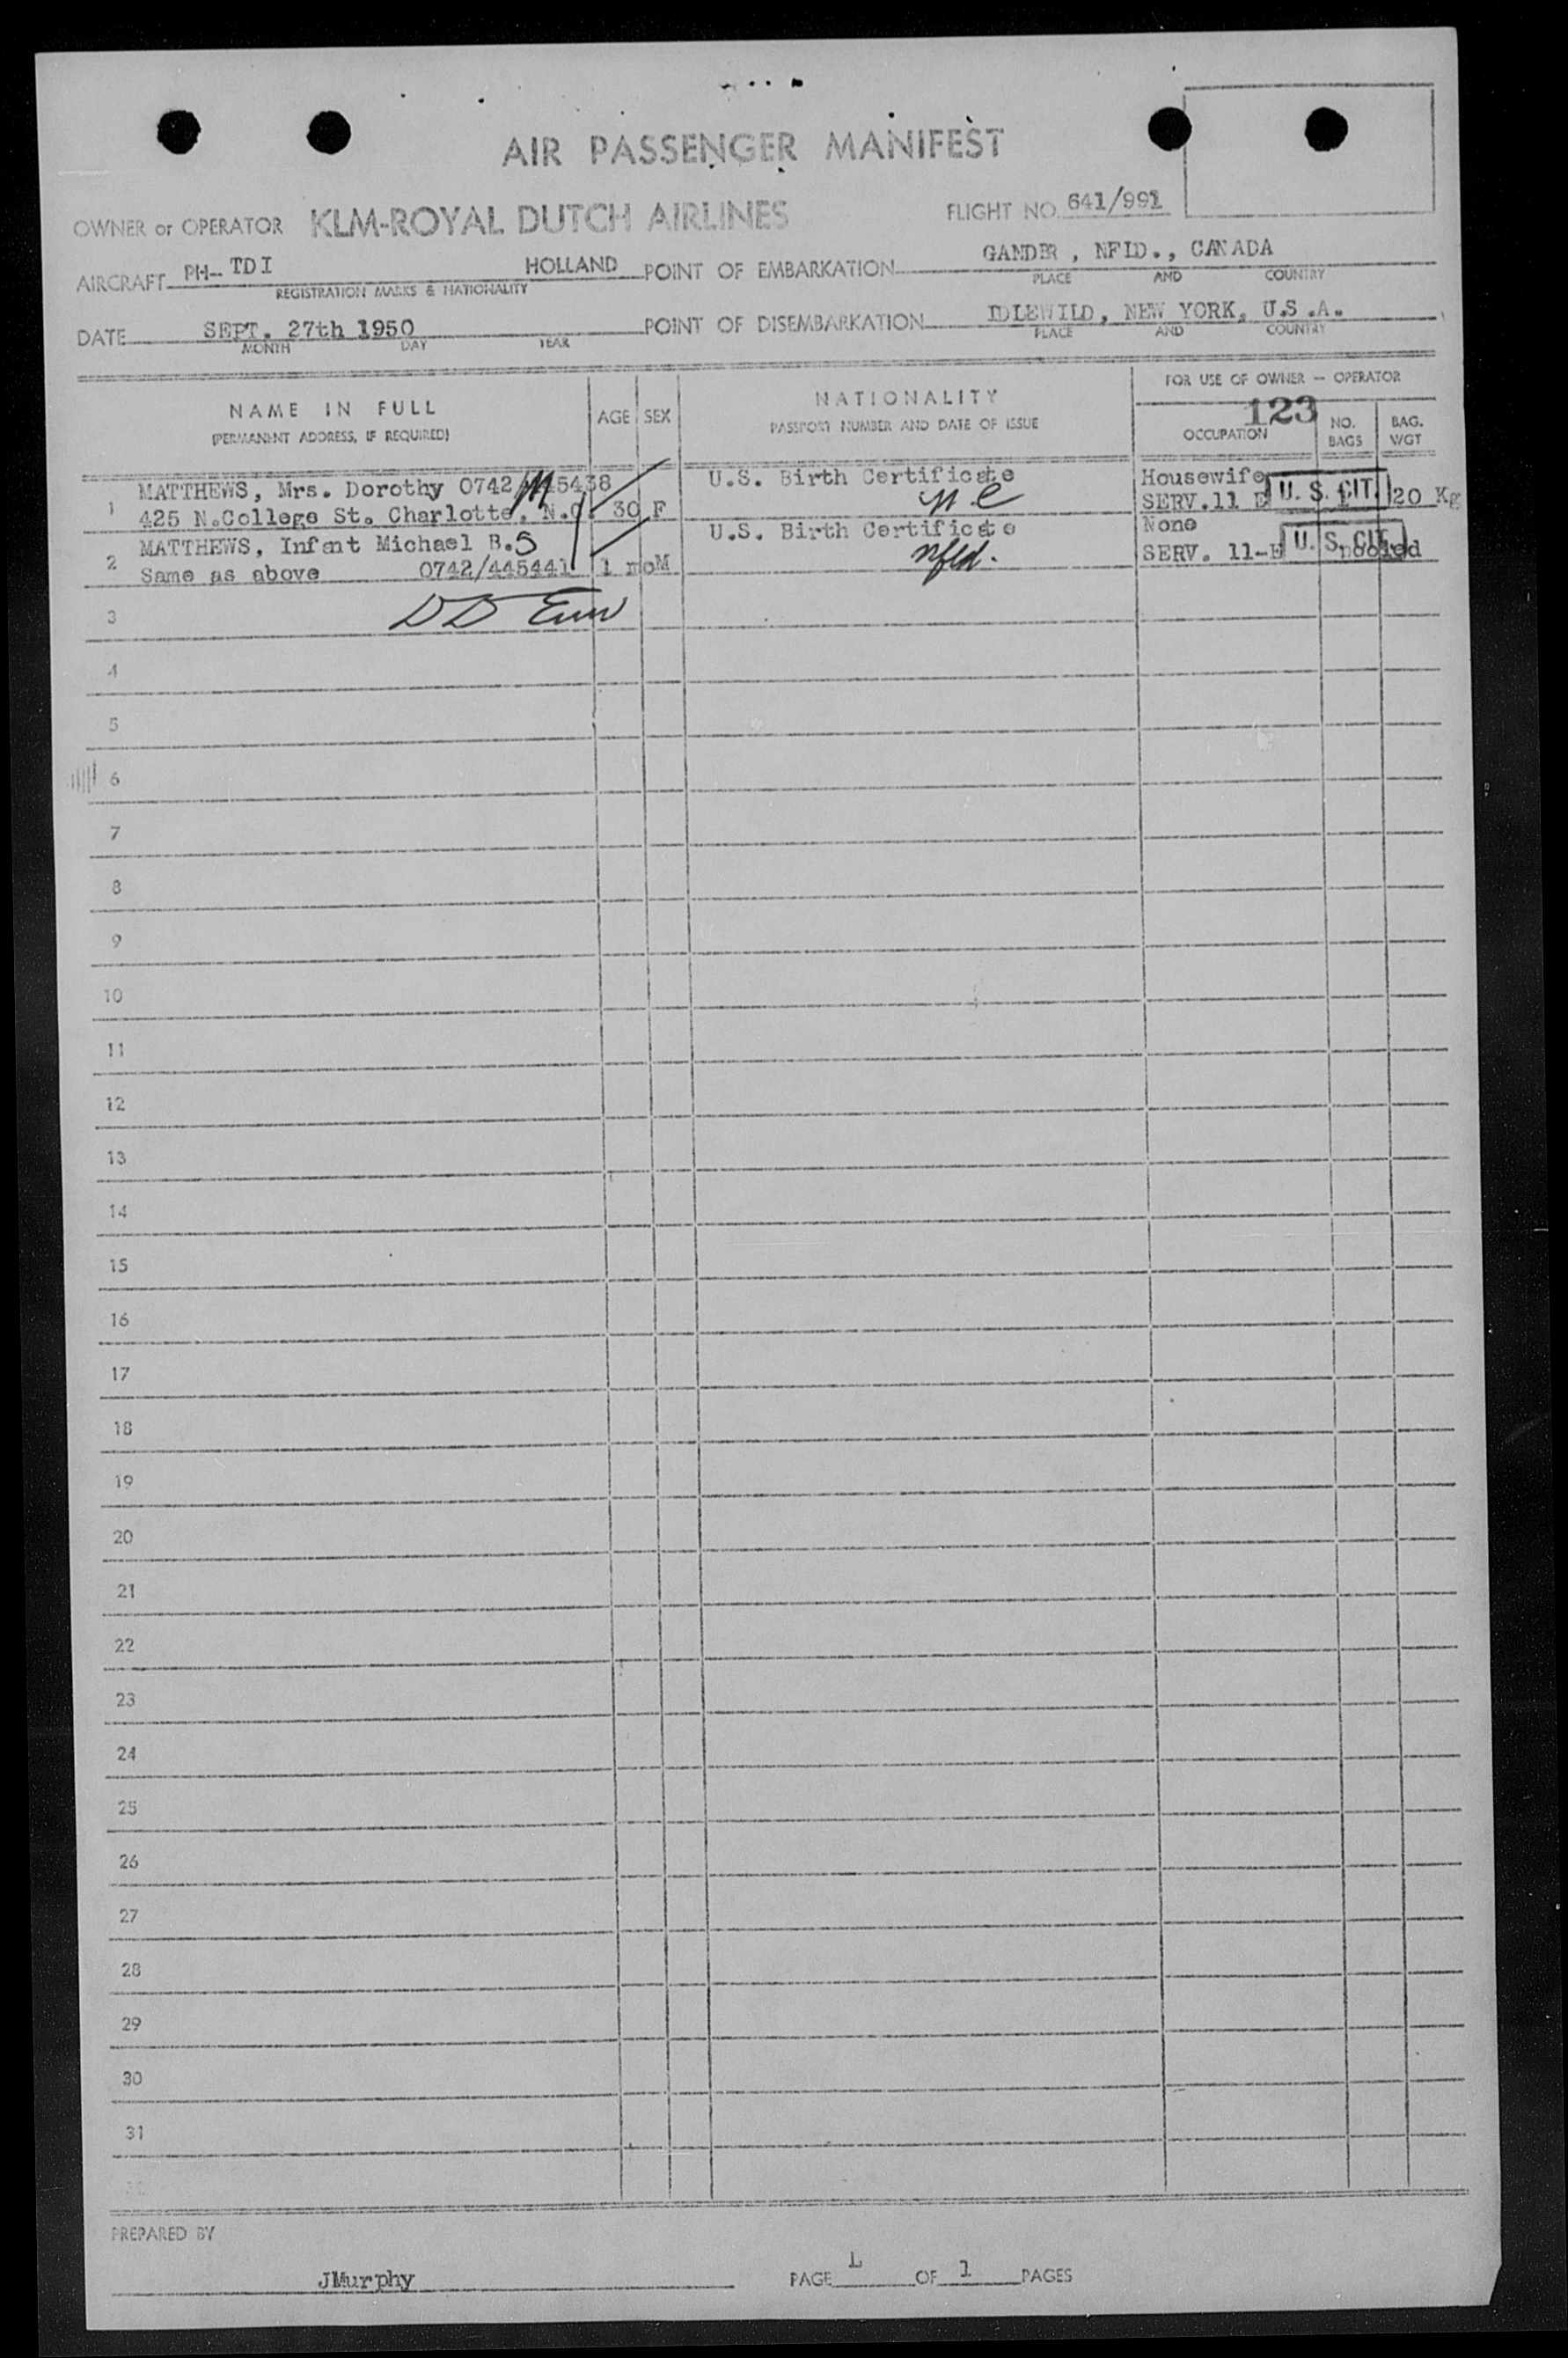 AIR PASSENGER MANIFEST
OWNER or OPERATOR KLM-ROYAL DUTCH AIRLINES FLIGHT NO. 641/991
AIRCRAFT PH-TDI HOLLAND POINT OF EMBARKATION GANDER, NFLD., CANADA
REGISTRATION MARKS & NATIONALITY PLACE AND COUNTRY
DATE SEPT. 27th 1950 POINT OF DISEMBARKATION IDLEWILD, NEW YORK, U.S.A.
MONTH DAY YEAR PLACE AND COUNTRY
NAME IN FULL AGE SEX NATIONALITY FOR USE OF OWNER — OPERATOR
(PERMANENT ADDRESS, IF REQUIRED) PASSPORT NUMBER AND DATE OF ISSUE OCCUPATION 123 NO. BAGS BAG. WGT
1 MATTHEWS, Mrs. Dorothy 0742/ 5438 U.S. Birth Certificate Housewife
425 N.College St. Charlotte, N.C. 30 F SERV.11 E U. S. CIT. 1 20 Kg
MATTHEWS, Infant Michael B.S U.S. Birth Certificate None
2 Same as above 0742/445441 1 mo M Nfld. SERV. 11-E U. S. CIT. pooled
3 DD
4
5
6
7
8
9
10
11
12
13
14
15
16
17
18
19
20
21
22
23
24
25
26
27
28
29
30
31
PREPARED BY
JMurphy PAGE 1 OF 1 PAGES